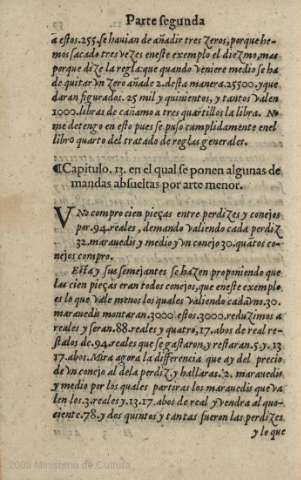 Parte segunda
a estos.255.se hauian de añadir tres zeros, porque he-
mos sacado tres vezes en este exemplo el diezmo, mas
porque dize la regla: que quando veniere medio se ha
de quitar vn zero añade 2. desta manera.25500. y que
daran figurados. 25 mil y quinientos, y tantos valen
1000. libras de cañamo a tres quartillos la libra. No
me detengo en esto pues se puso cumplidamente en el
libro quarto del tratado de reglas generales.
¶Capitulo. 13. en el qual se ponen algunas de
mandas absueltas por arte menor.
VNo compro cien pieças entre perdizes y conejos
por .94. reales, demando valiendo cada perdiz
32. marauedis y medio y vn conejo 30. quãtos co-
nejos compro.
Esta y sus semejantes se hazen proponiendo que
las cien pieças eran todos conejos, que en este exemplo
es lo que vale menos los quales valiendo cada vno.30.
marauedis montaran.3000. estos.3000. reduzimos a
reales y seran.88. reales y quatro, 17. abos de real re-
stalos de.94. reales que se gastaron, y restaran.5. y .13
17. abos. Mira agora la differencia que ay del precio
de vn conejo al dela perdiz, y hallaras. 2. marauedis
y medio por los quales partiras los marauedis que va
len los.5. reales y .13.17. abos de real y vendra al quo-
ciente.78. y dos quintos y tantas fueron las perdizes
y lo que
2009 Ministerio de Cultura